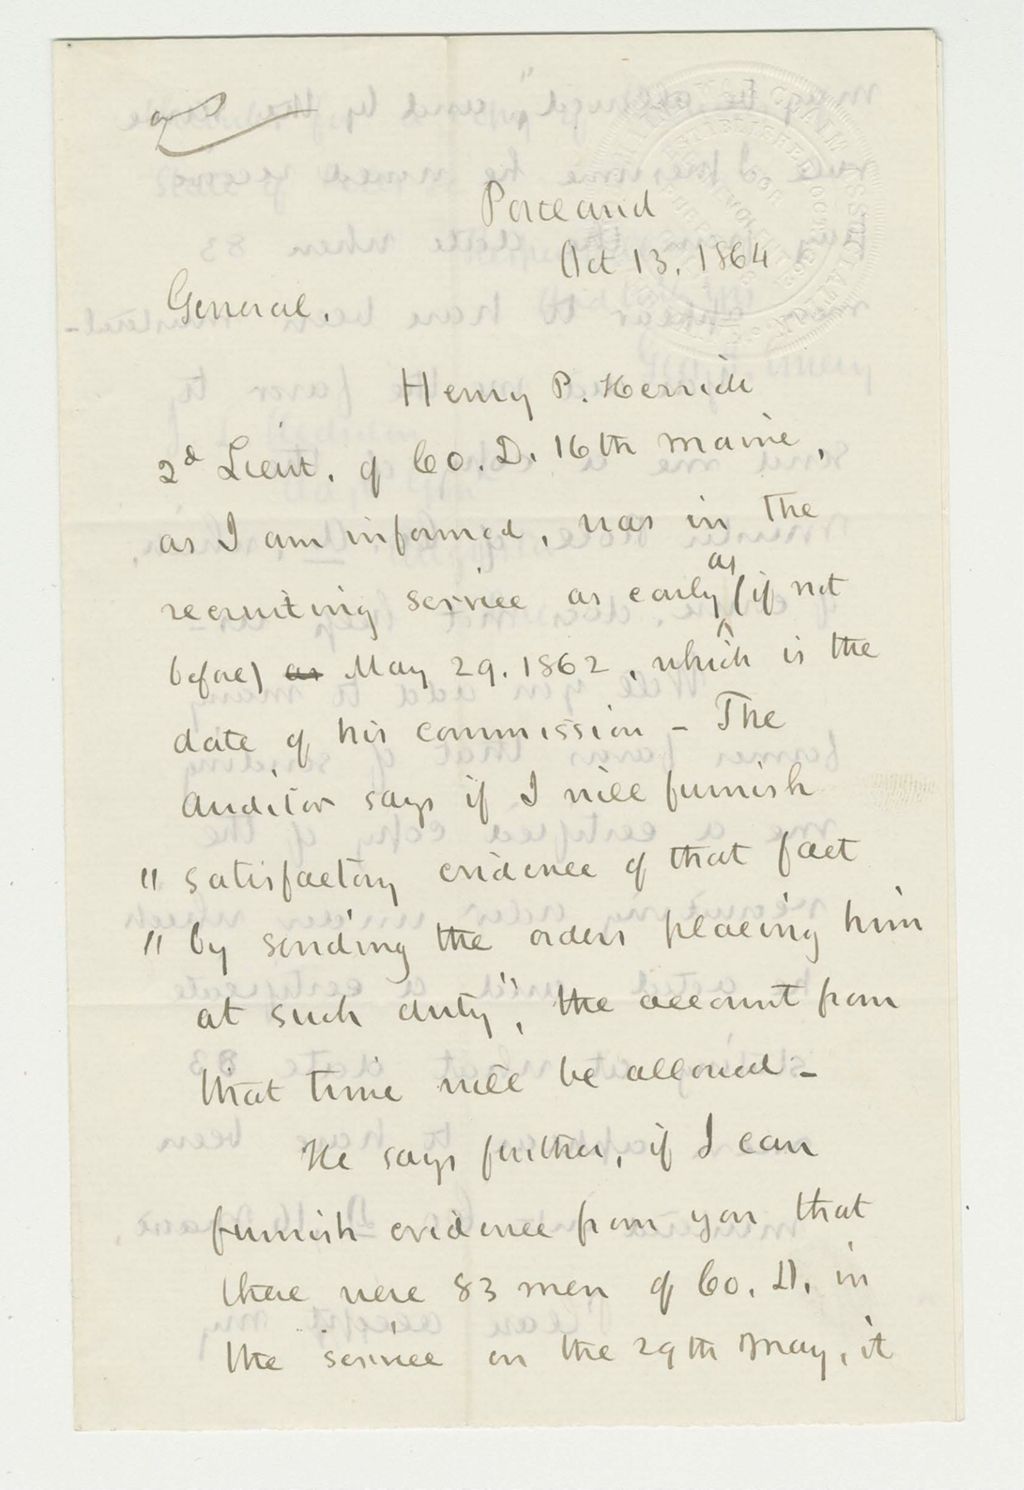 Portland
Oct 13. 1864
General.
Henry P. Herrick
2d Lieut. of Co. D. 16th Maine,
as I am informed, was in the
recruiting service as early as (if not
before) as May 29. 1862, which is the
date of his commission - The
Auditor says if I will furnish
" satisfactory evidence of that fact
" by sending the orders placing him
at such duty", the account from
that time will be allowed -
He says further, if I can
furnish evidence from you that
there were 83 men of Co. D. in
the service on the 29th May, it